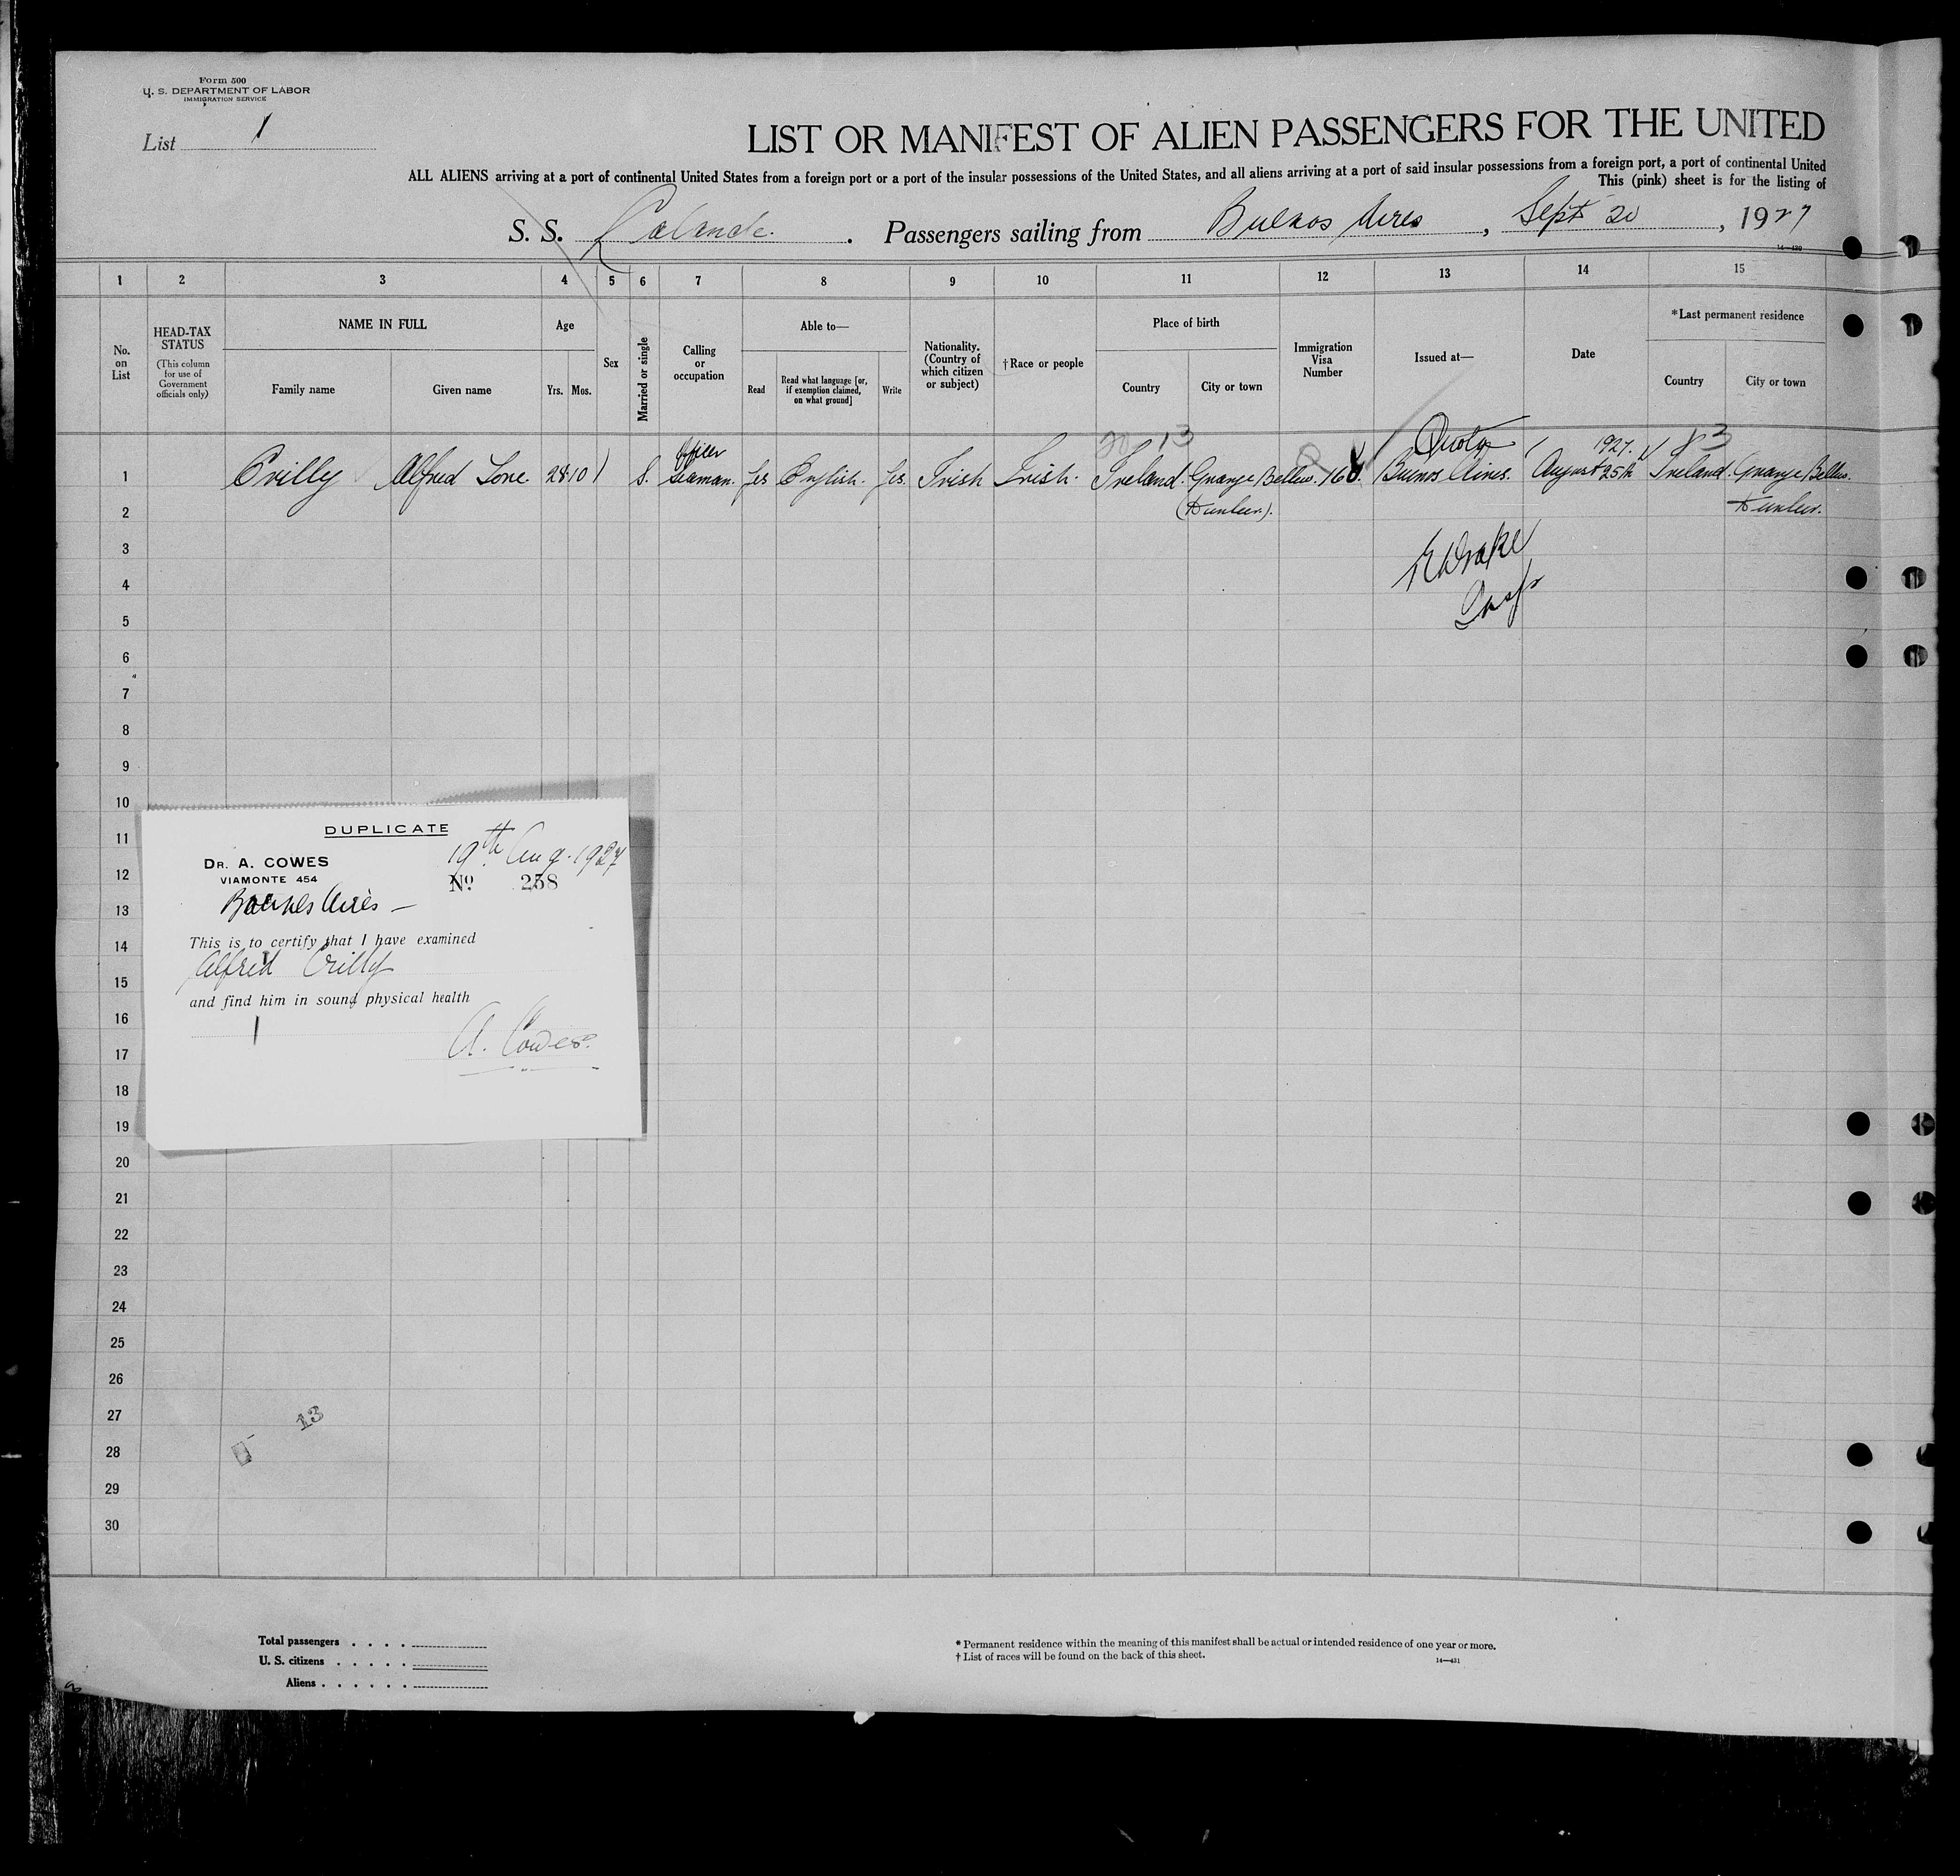 Form 500
U. S. DEPARTMENT OF LABOR
IMMIGRATION SERVICE
List 1
LIST OR MANIFEST OF ALIEN PASSENGERS FOR THE UNITED
ALL ALIENS arriving at a port of continental United States from a foreign port or a port of the insular possessions of the United States, and all aliens arriving at a port of said insular possessions from a foreign port, a port of continental United
This (pink) sheet is for the listing of
S. S. Passengers sailing from Buenos Aires, Sept 20, 1927
1 2 3 4 5 6 7 8 9 10 11 12 13 14 15
No. on List
HEAD-TAX STATUS
(This column for use of Government officials only)
NAME IN FULL
Family name
Given name
Age
Yrs. Mos.
Sex
Married or single
Calling or occupation
Able to—
Read
Read what language [or, if exemption claimed, on what ground]
Write
Nationality. (Country of which citizen or subject)
†Race or people
Place of birth
Country
City or town
Immigration Visa Number
Issued at—
Date
*Last permanent residence
Country
City or town
Officer 13 Quota 1927.
1 Crilly Alfred 28 10 S. Seaman. Yes English. Yes. Irish Irish. Ireland. Grange Bellew. 168. Buenos Aires. August 25th Ireland. Grange Bellew.
2 (Dunleer). Dunleer.
3
4
5
6
7
8
9
10
11
12
13
14
15
16
17
18
19
20
21
22
23
24
25
26
27
28
29
30
DUPLICATE
19th Aug. 1927
DR. A. COWES
VIAMONTE 454
No. 258
Buenos Aires —
This is to certify that I have examined
Alfred Crilly
and find him in sound physical health
A. Cowes.
13
Total passengers . . . .
U. S. citizens . . . . .
Aliens . . . . . .
* Permanent residence within the meaning of this manifest shall be actual or intended residence of one year or more.
† List of races will be found on the back of this sheet.
14—431